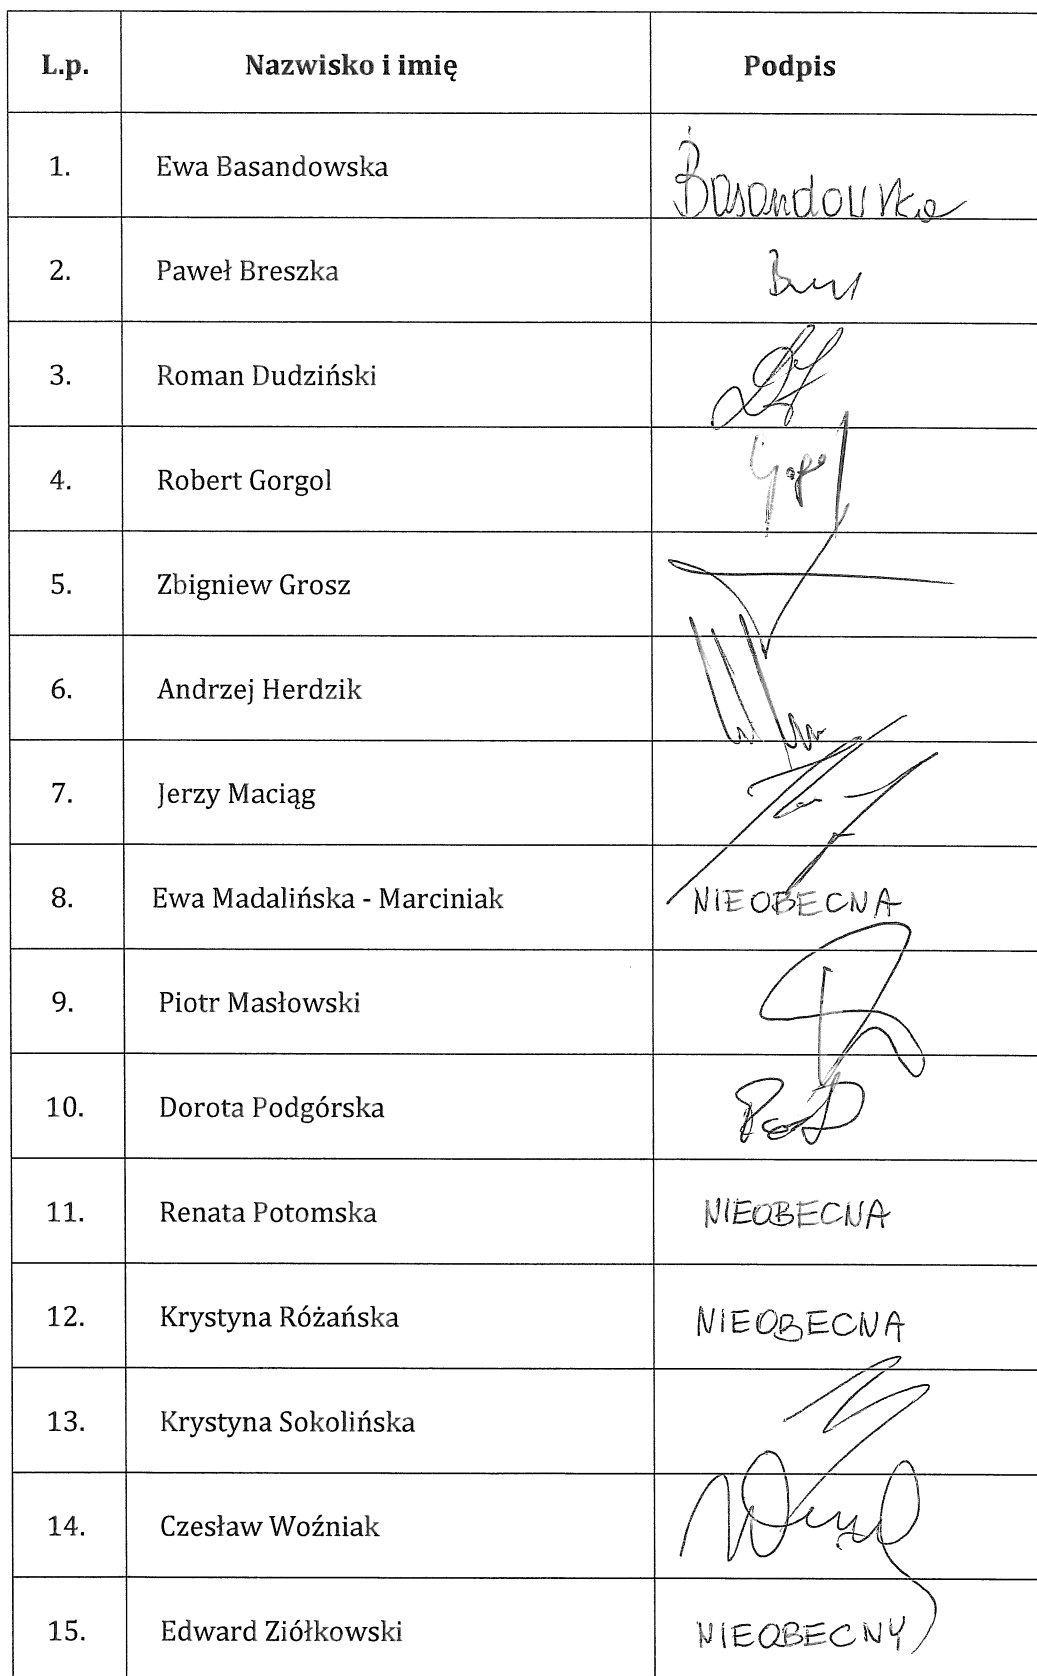 L.p. Nazwisko i imię Podpis
1. Ewa Basandowska Basandowska
2. Paweł Breszka
3. Roman Dudziński
4. Robert Gorgol
5. Zbigniew Grosz
6. Andrzej Herdzik
7. Jerzy Maciąg
8. Ewa Madalińska - Marciniak NIEOBECNA
9. Piotr Masłowski
10. Dorota Podgórska
11. Renata Potomska NIEOBECNA
12. Krystyna Różańska NIEOBECNA
13. Krystyna Sokolińska
14. Czesław Woźniak
15. Edward Ziółkowski NIEOBECNY